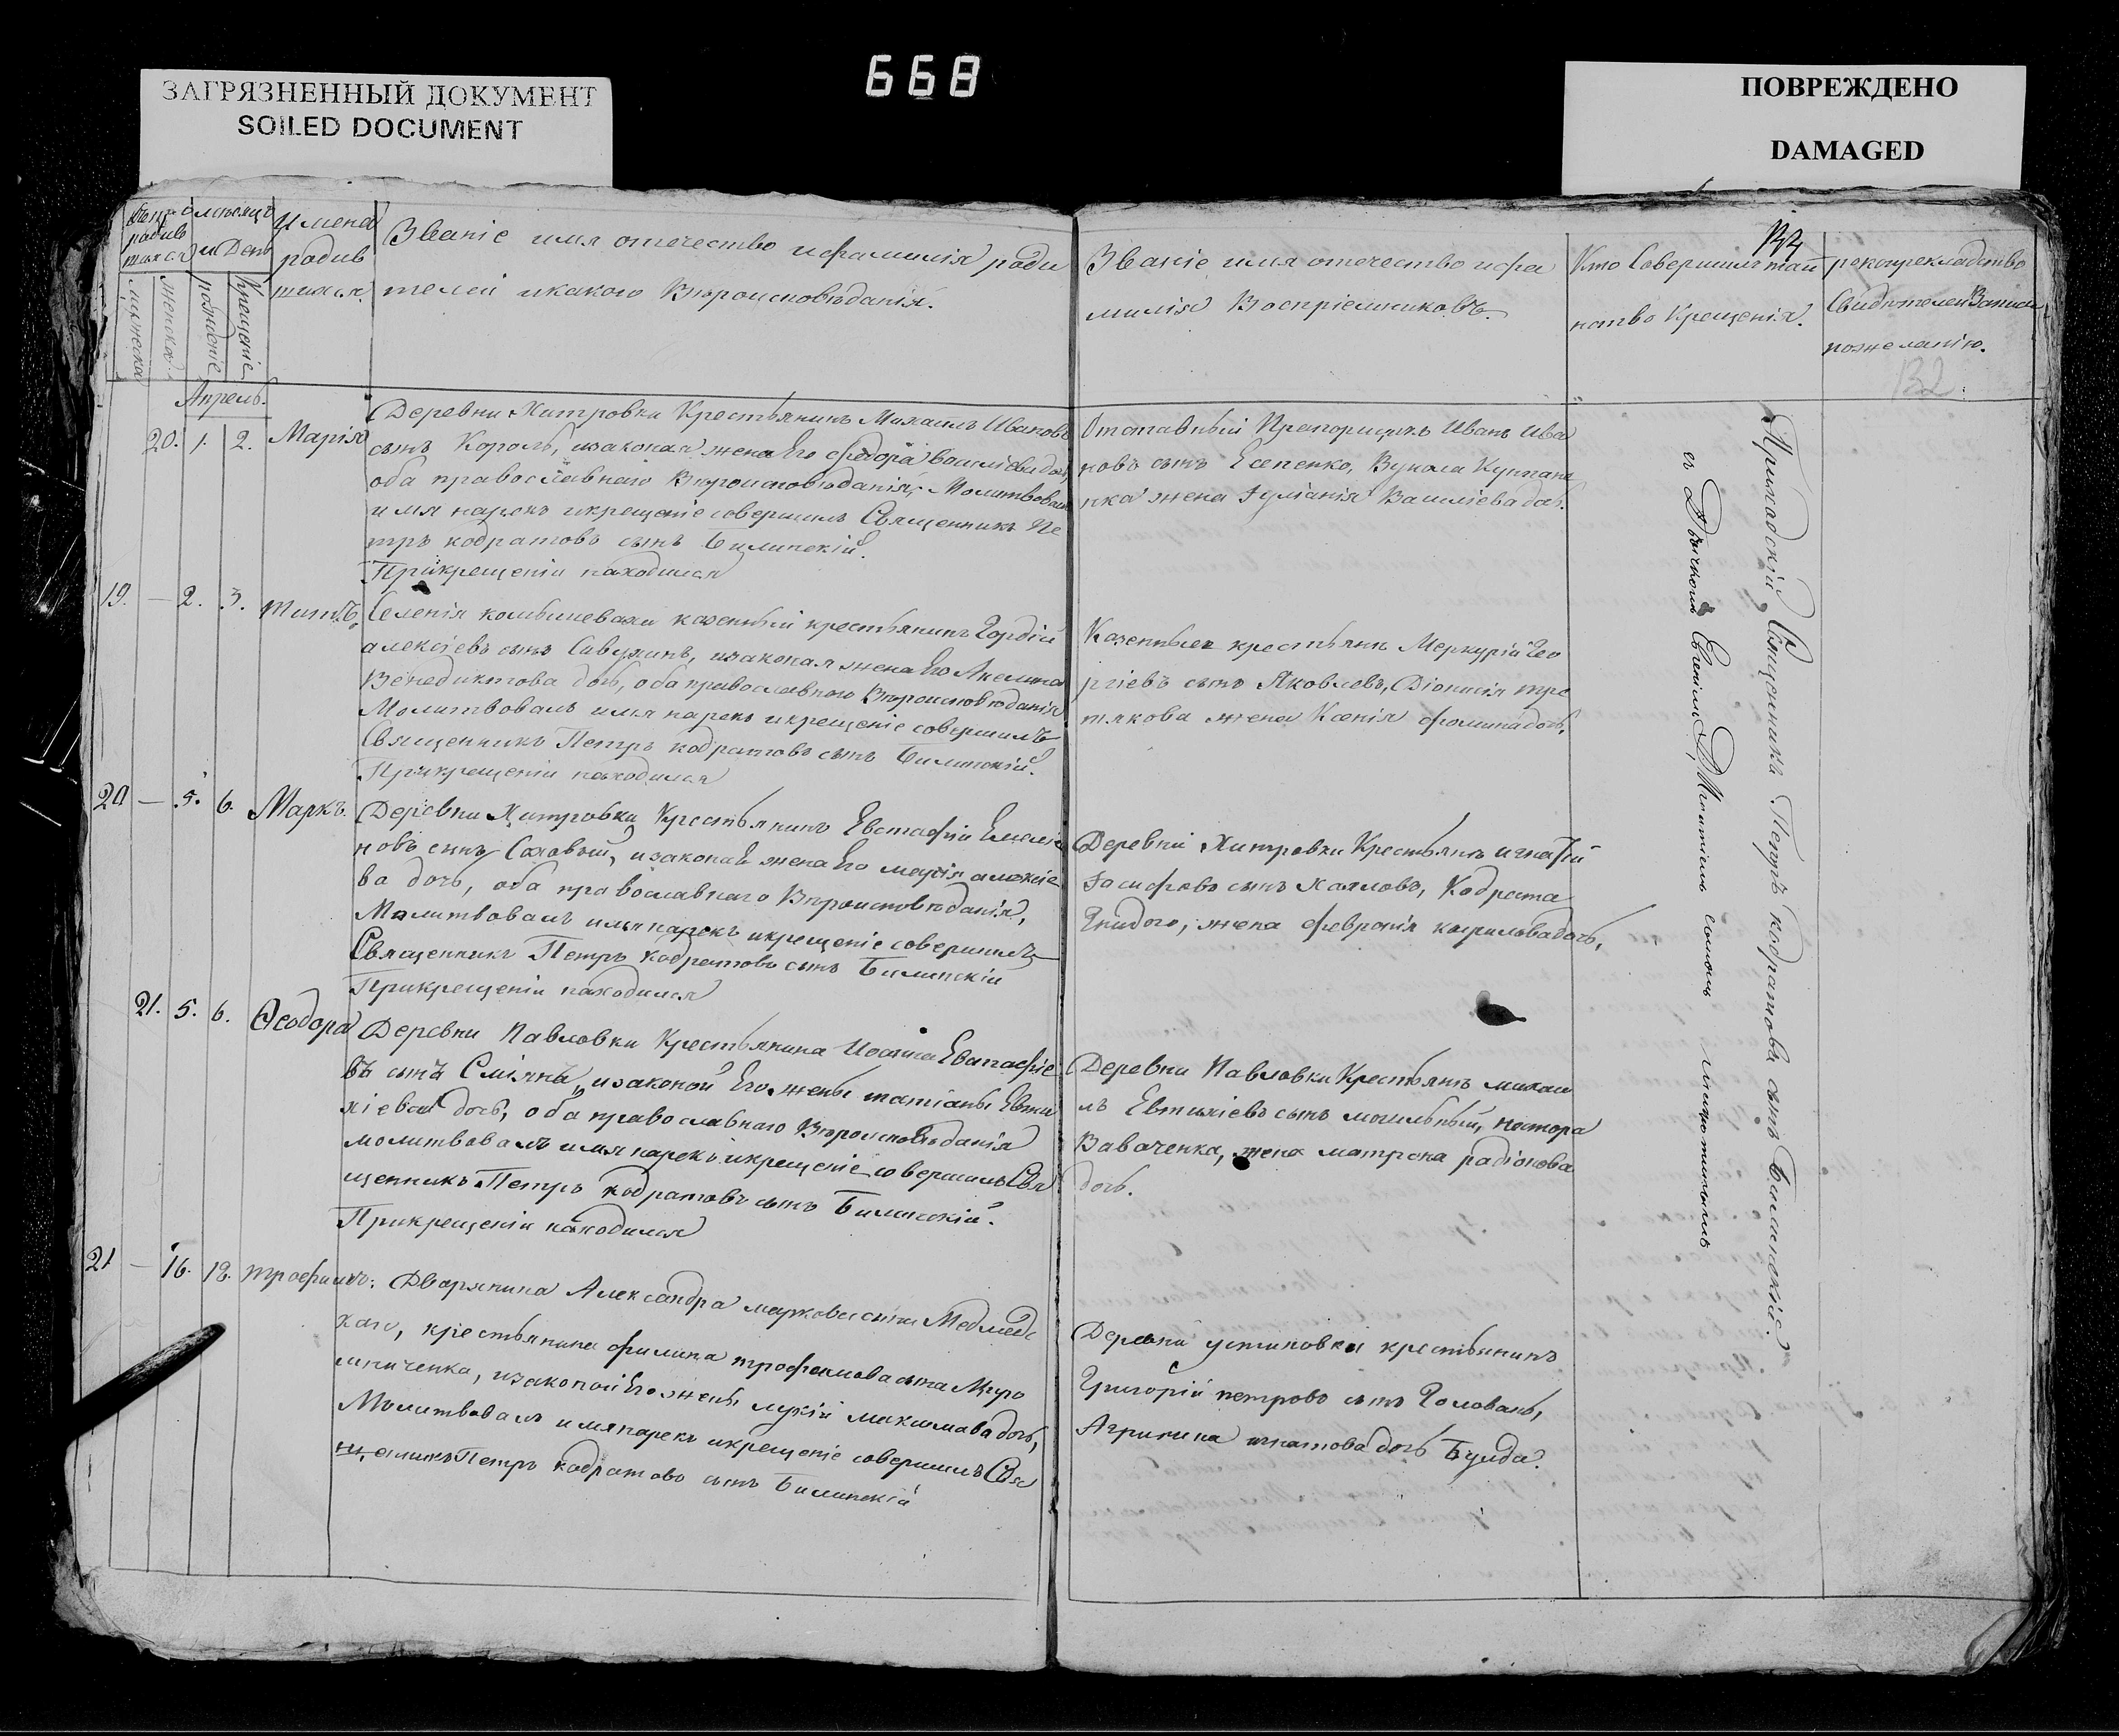 668
ЗАГРЯЗНЕННЫЙ ДОКУМЕНТ
SOILED DOCUMENT
ПОВРЕЖДЕНО
DAMAGED
имена
родив
шихся
мужеска
женска
рожденіе
Крещеніе
и День
Званіе имя отечество ифамилія роди
телей икакого Вѣроисповѣданія.
Званіе имя отечество ифа
милія Воспріемниковъ.
Кто Совершилъ таи
нство Крещенія.
Свидѣтелей Записи
пожеланію.
132
Апрель.
20. 1. 2. Марія
Деревни Хитровки Крестьянинъ Михаилъ Ивановъ
сынъ Король, изаконая жена Его Ѳедора
оба православнаго Вѣроисповѣданія, Молитвовалъ
имя нарекъ икрещеніе совершилъ Священникъ Пе
тръ кодратовъ сынъ Билинскій.
Прикрещеніи находился
Отставный Прапорщикъ Иванъ Ива
новъ сынъ Есепенко, Вукола
жена Іуліанія Василіева доч.
19. — 2. 3. титъ.
Селенія казенный крестьянинъ Гордій
алексіевъ сынъ изаконая жена Его Акелина
Венедиктова доч, оба православнаго Вѣроисповѣданія
Молитвовалъ имя нарекъ икрещеніе совершилъ
Священникъ Петръ кодратовъ сынъ Билинскій.
Прикрещеніи находился
Казенныя крестьянъ Меркурій Гео
ргіевъ сынъ Яковлевъ, Діонисія тре
тякова жена Ксенія фомина доч,
20 — 5. 6. Маркъ.
Деревни Хитровки Крестьянинъ Евстафій Емелія
новъ сынъ изаконая жена Его марія алексіе
ва дочь, оба православнаго Вѣроисповѣданія,
Молитвовалъ имя нарекъ икрещеніе совершилъ
Священникъ Петръ кодратовъ сынъ Билинскій
Прикрещеніи находился
Деревни Хитровки Крестьянъ игнатій
Іосифовъ сынъ Козловъ, Кодрата
Гнидого, жена февронія кирилова дочь,
21. 5. 6. Ѳеодора
Деревни Павловки Крестьянина Іоанна Евстафіе
въ сынъ Сміянъ, изаконой Его жены татіаны Евти
хіева дочь, оба православнаго Вѣроисповѣданія
молитвовалъ имя нарекъ икрещеніе совершилъ Свя
щенникъ Петръ кодратовъ сынъ Билинскій.
Прикрещеніи находился
Деревни Павловки Крестьянъ михаи
лъ Евтихіевъ сынъ могильный, нестора
Вавоченка, жена матрона радіонова
дочь.
21 — 16. 18. трофимъ:
Дворянина Александра маркова сына Медведс
каго, крестьянина филипа трофимова сына Миро
шниченка, изаконой Его жены лукіи максимова доч,
Молитвовалъ имя нарекъ икрещеніе совершилъ Свя
щенникъ Петръ кодратовъ сынъ Билинскій
Деревни устиновки крестьянинъ
Григорій петровъ сынъ Головань,
Агрипина игнатова доч Бунда.
Приходскій Священникъ Петръ кодратовъ сынъ Билинскій.
съ Дьячкомъ Евгеніемъ